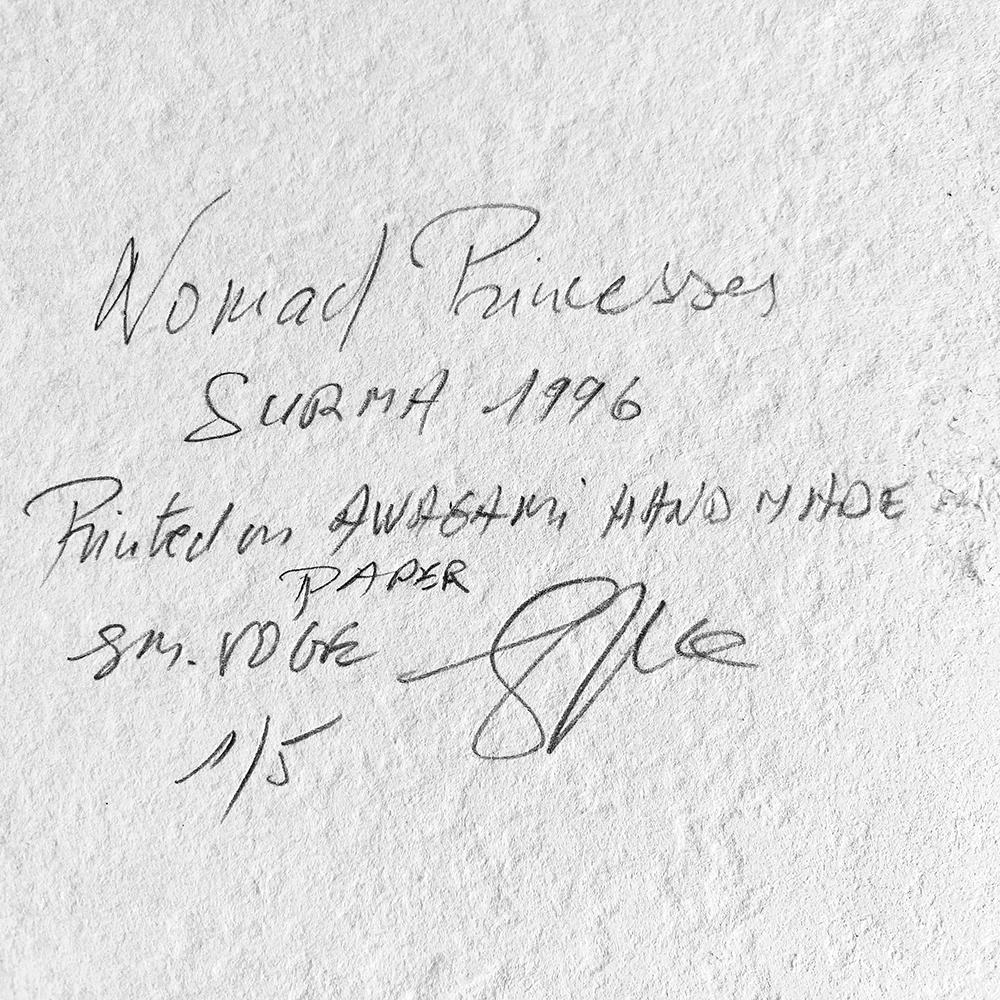 Nomad Princesses
SURMA 1996
Printed on AWAGAMi HAND MADE
PAPER
JM. VOGE
1/5